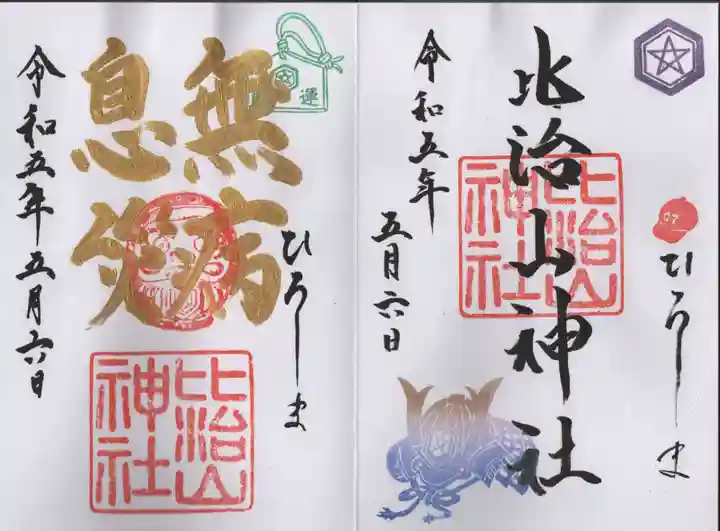 比治山神社
比治山
神社
C7
ひろしま
令和五年
五月六日
無病
息災
運
ひろしま
令和五年五月六日
比治山
神社